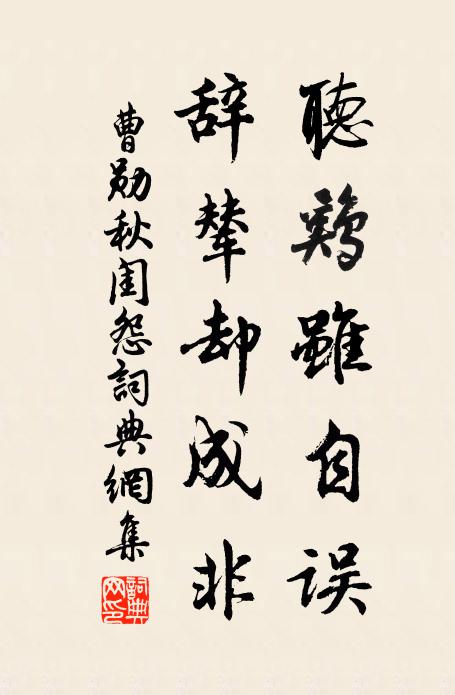 聽鷄雖自误
辞辇却成非
曹勋秋闺怨詞典網集
詞典网印